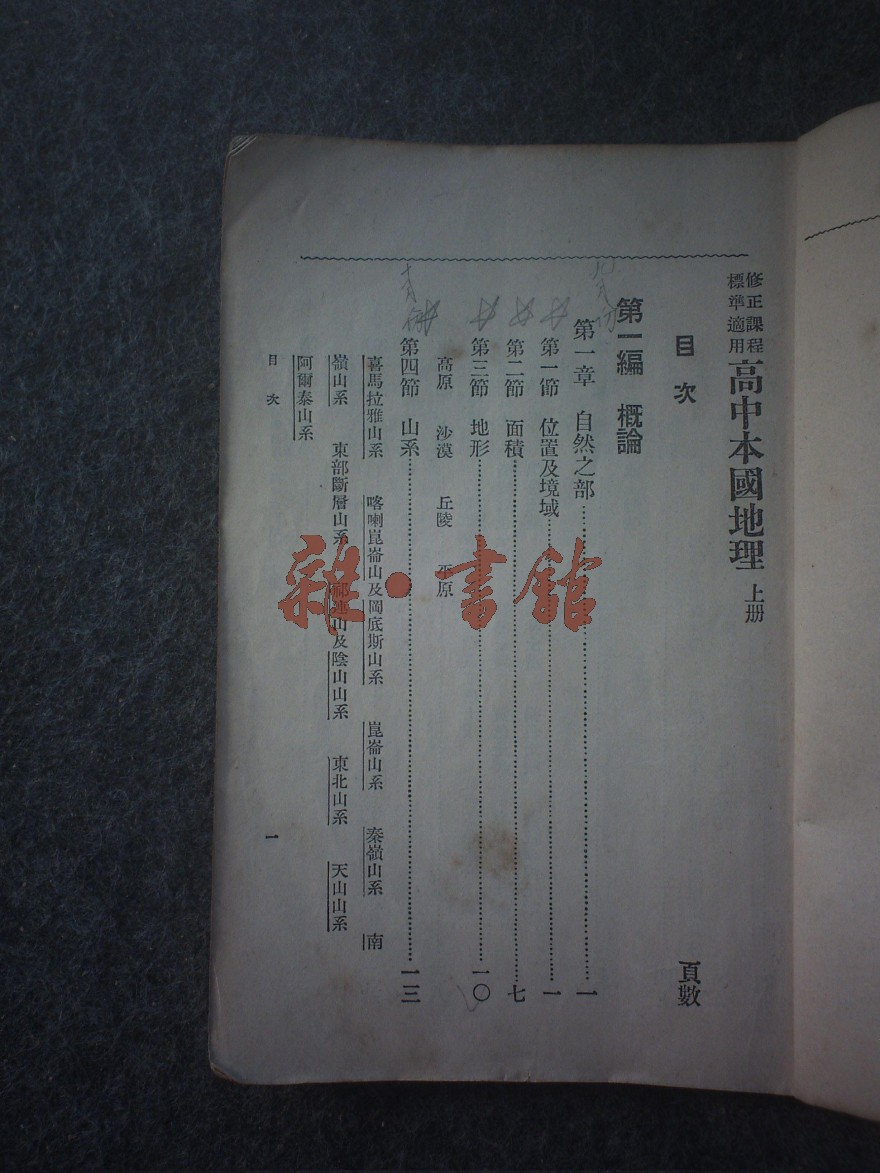 修正課程
標準適用
高中本國地理 上册
目次 頁數
第一編 概論
第一章 自然之部 一
第一節 位置及境域 一
第二節 面積 七
第三節 地形 一〇
高原 沙漠 丘陵 平原
第四節 山系 一三
喜馬拉雅山系 喀喇崑崙山及岡底斯山系 崑崙山系 秦嶺山系 南
嶺山系 東部斷層山系 祁連山及陰山山系 東北山系 天山山系
阿爾泰山系
目次 一
雜·書館